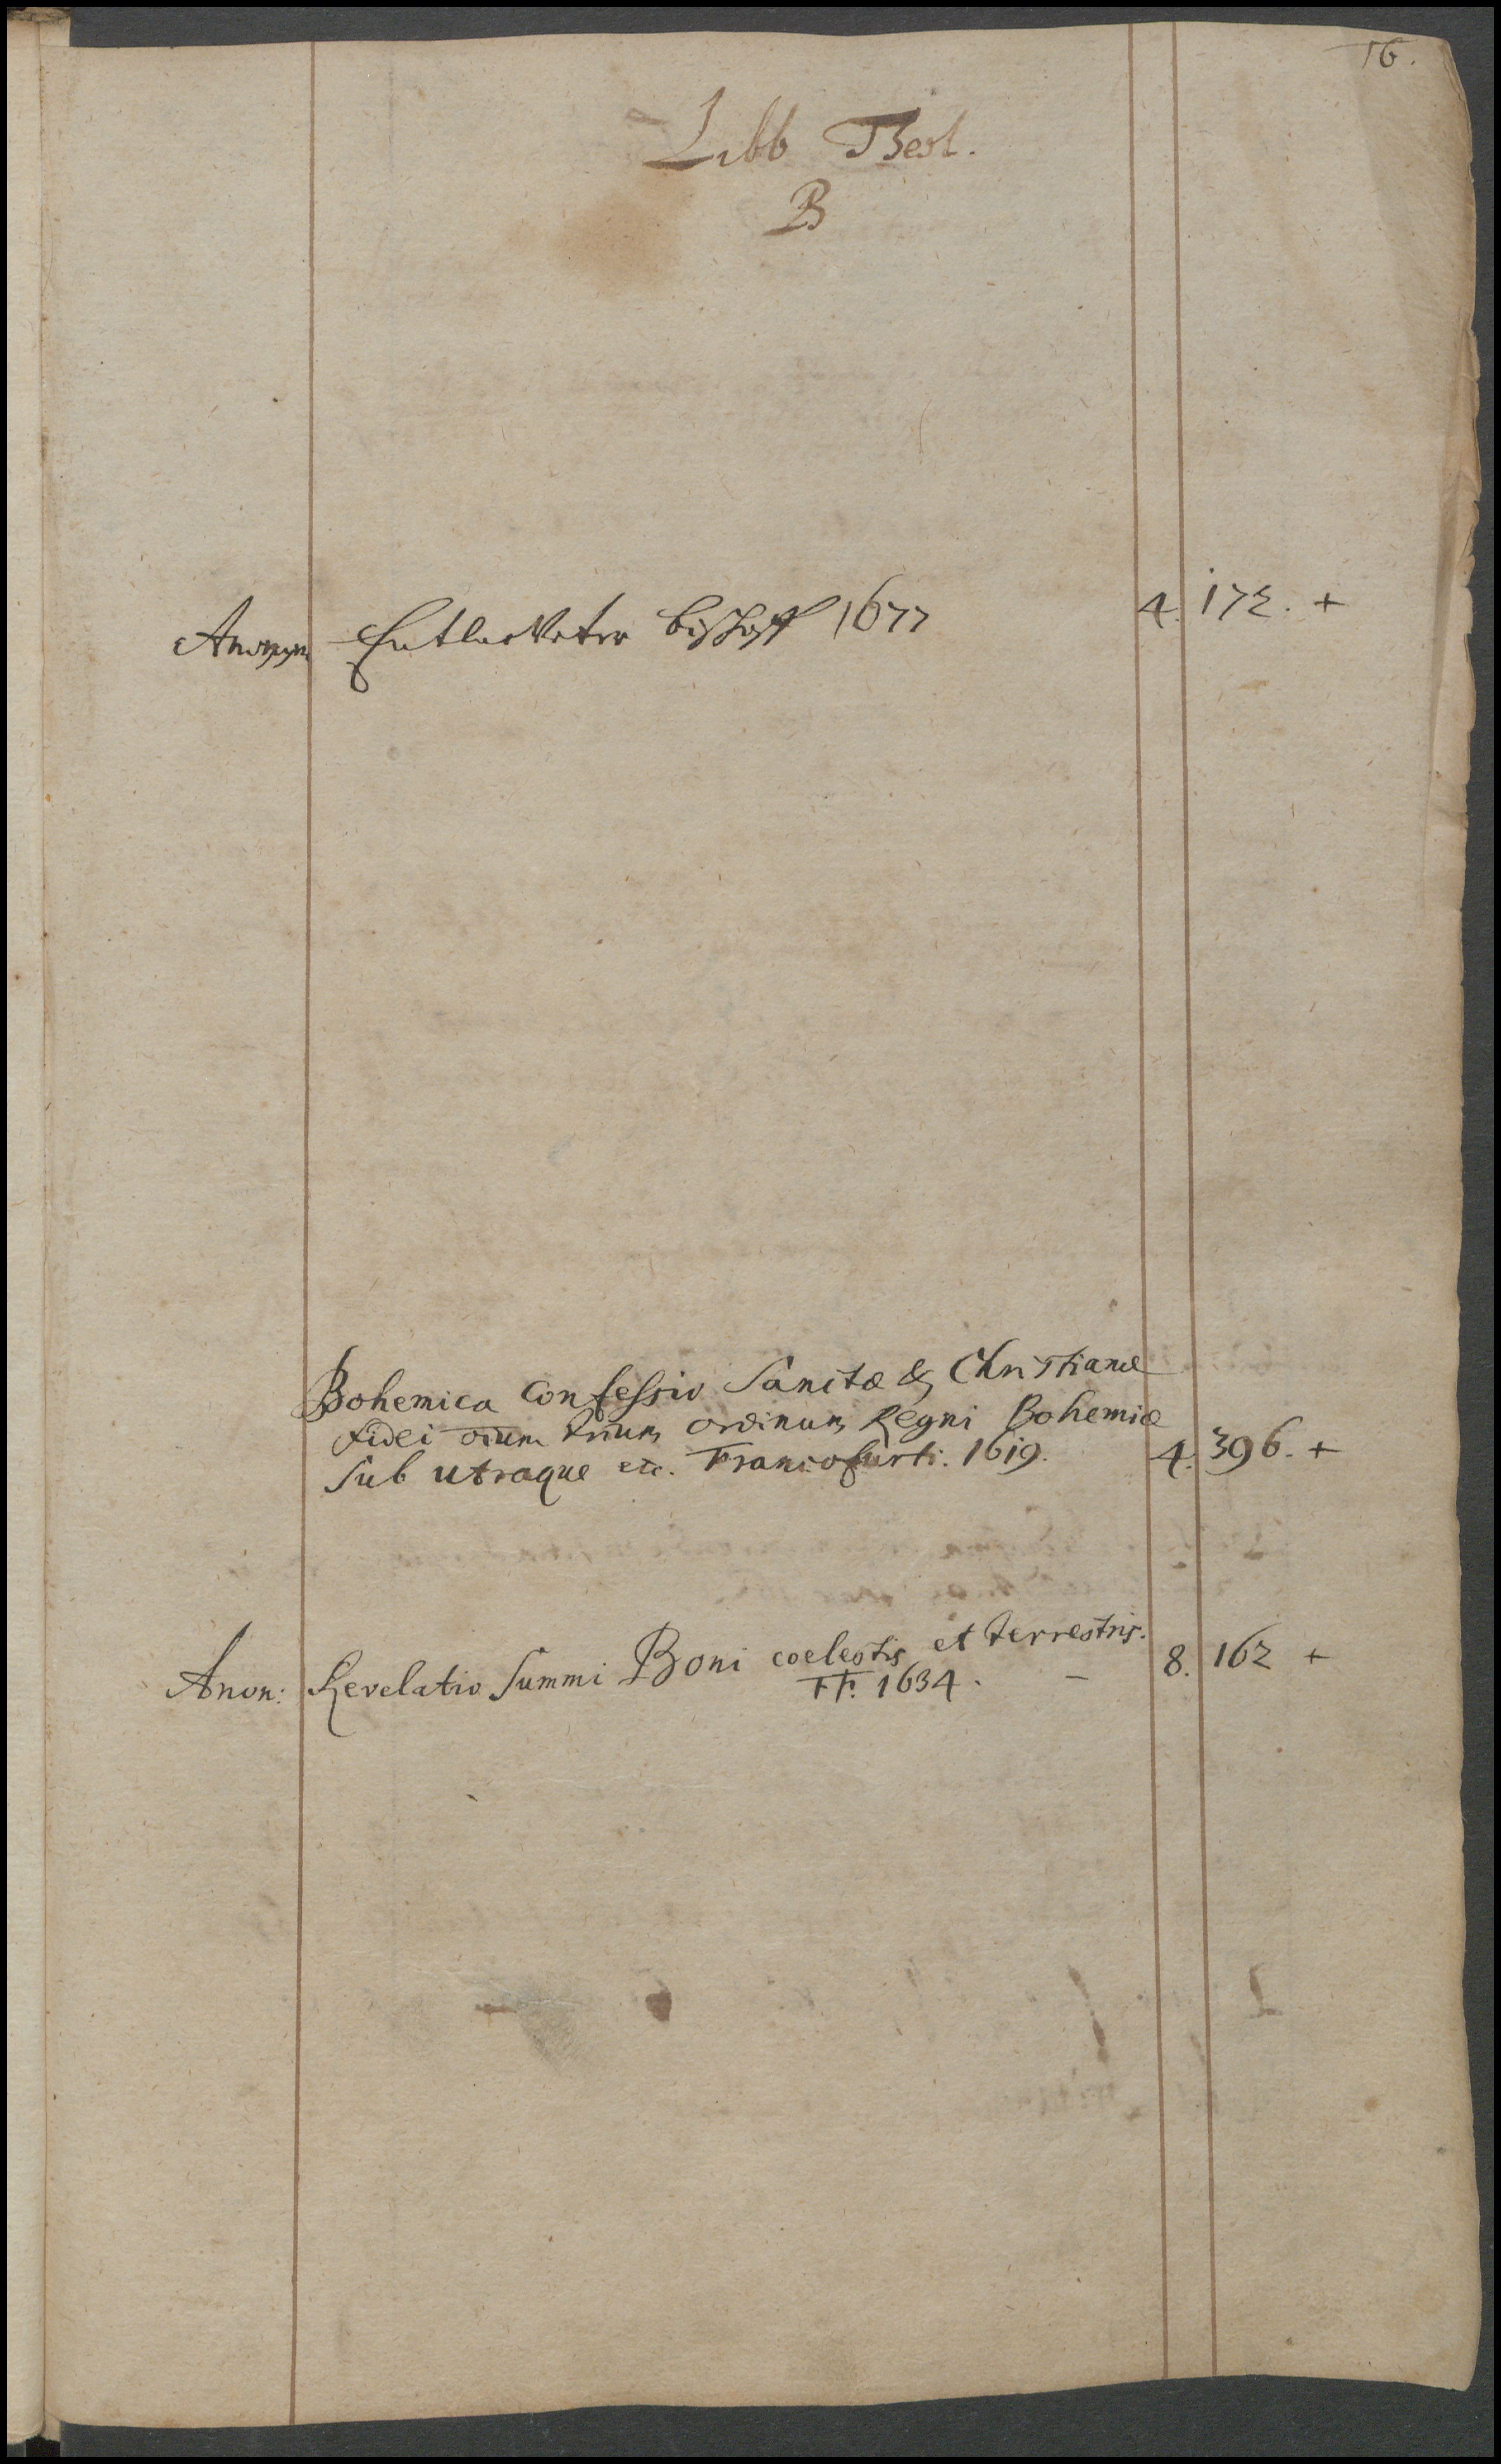 16.
Libb Theol.
B
Anonym Entlarvter Bischoff 1677 4. 172. +
Bohemica Confessio Sanctæ & Christianæ
fidei oium trium ordinum Regni Bohemiæ
sub utraque etc. Francofurti. 1619. 4. 396. +
Anon: Revelatio Summi Boni coelestis et terrestris. 8. 162 +
FF. 1634. –